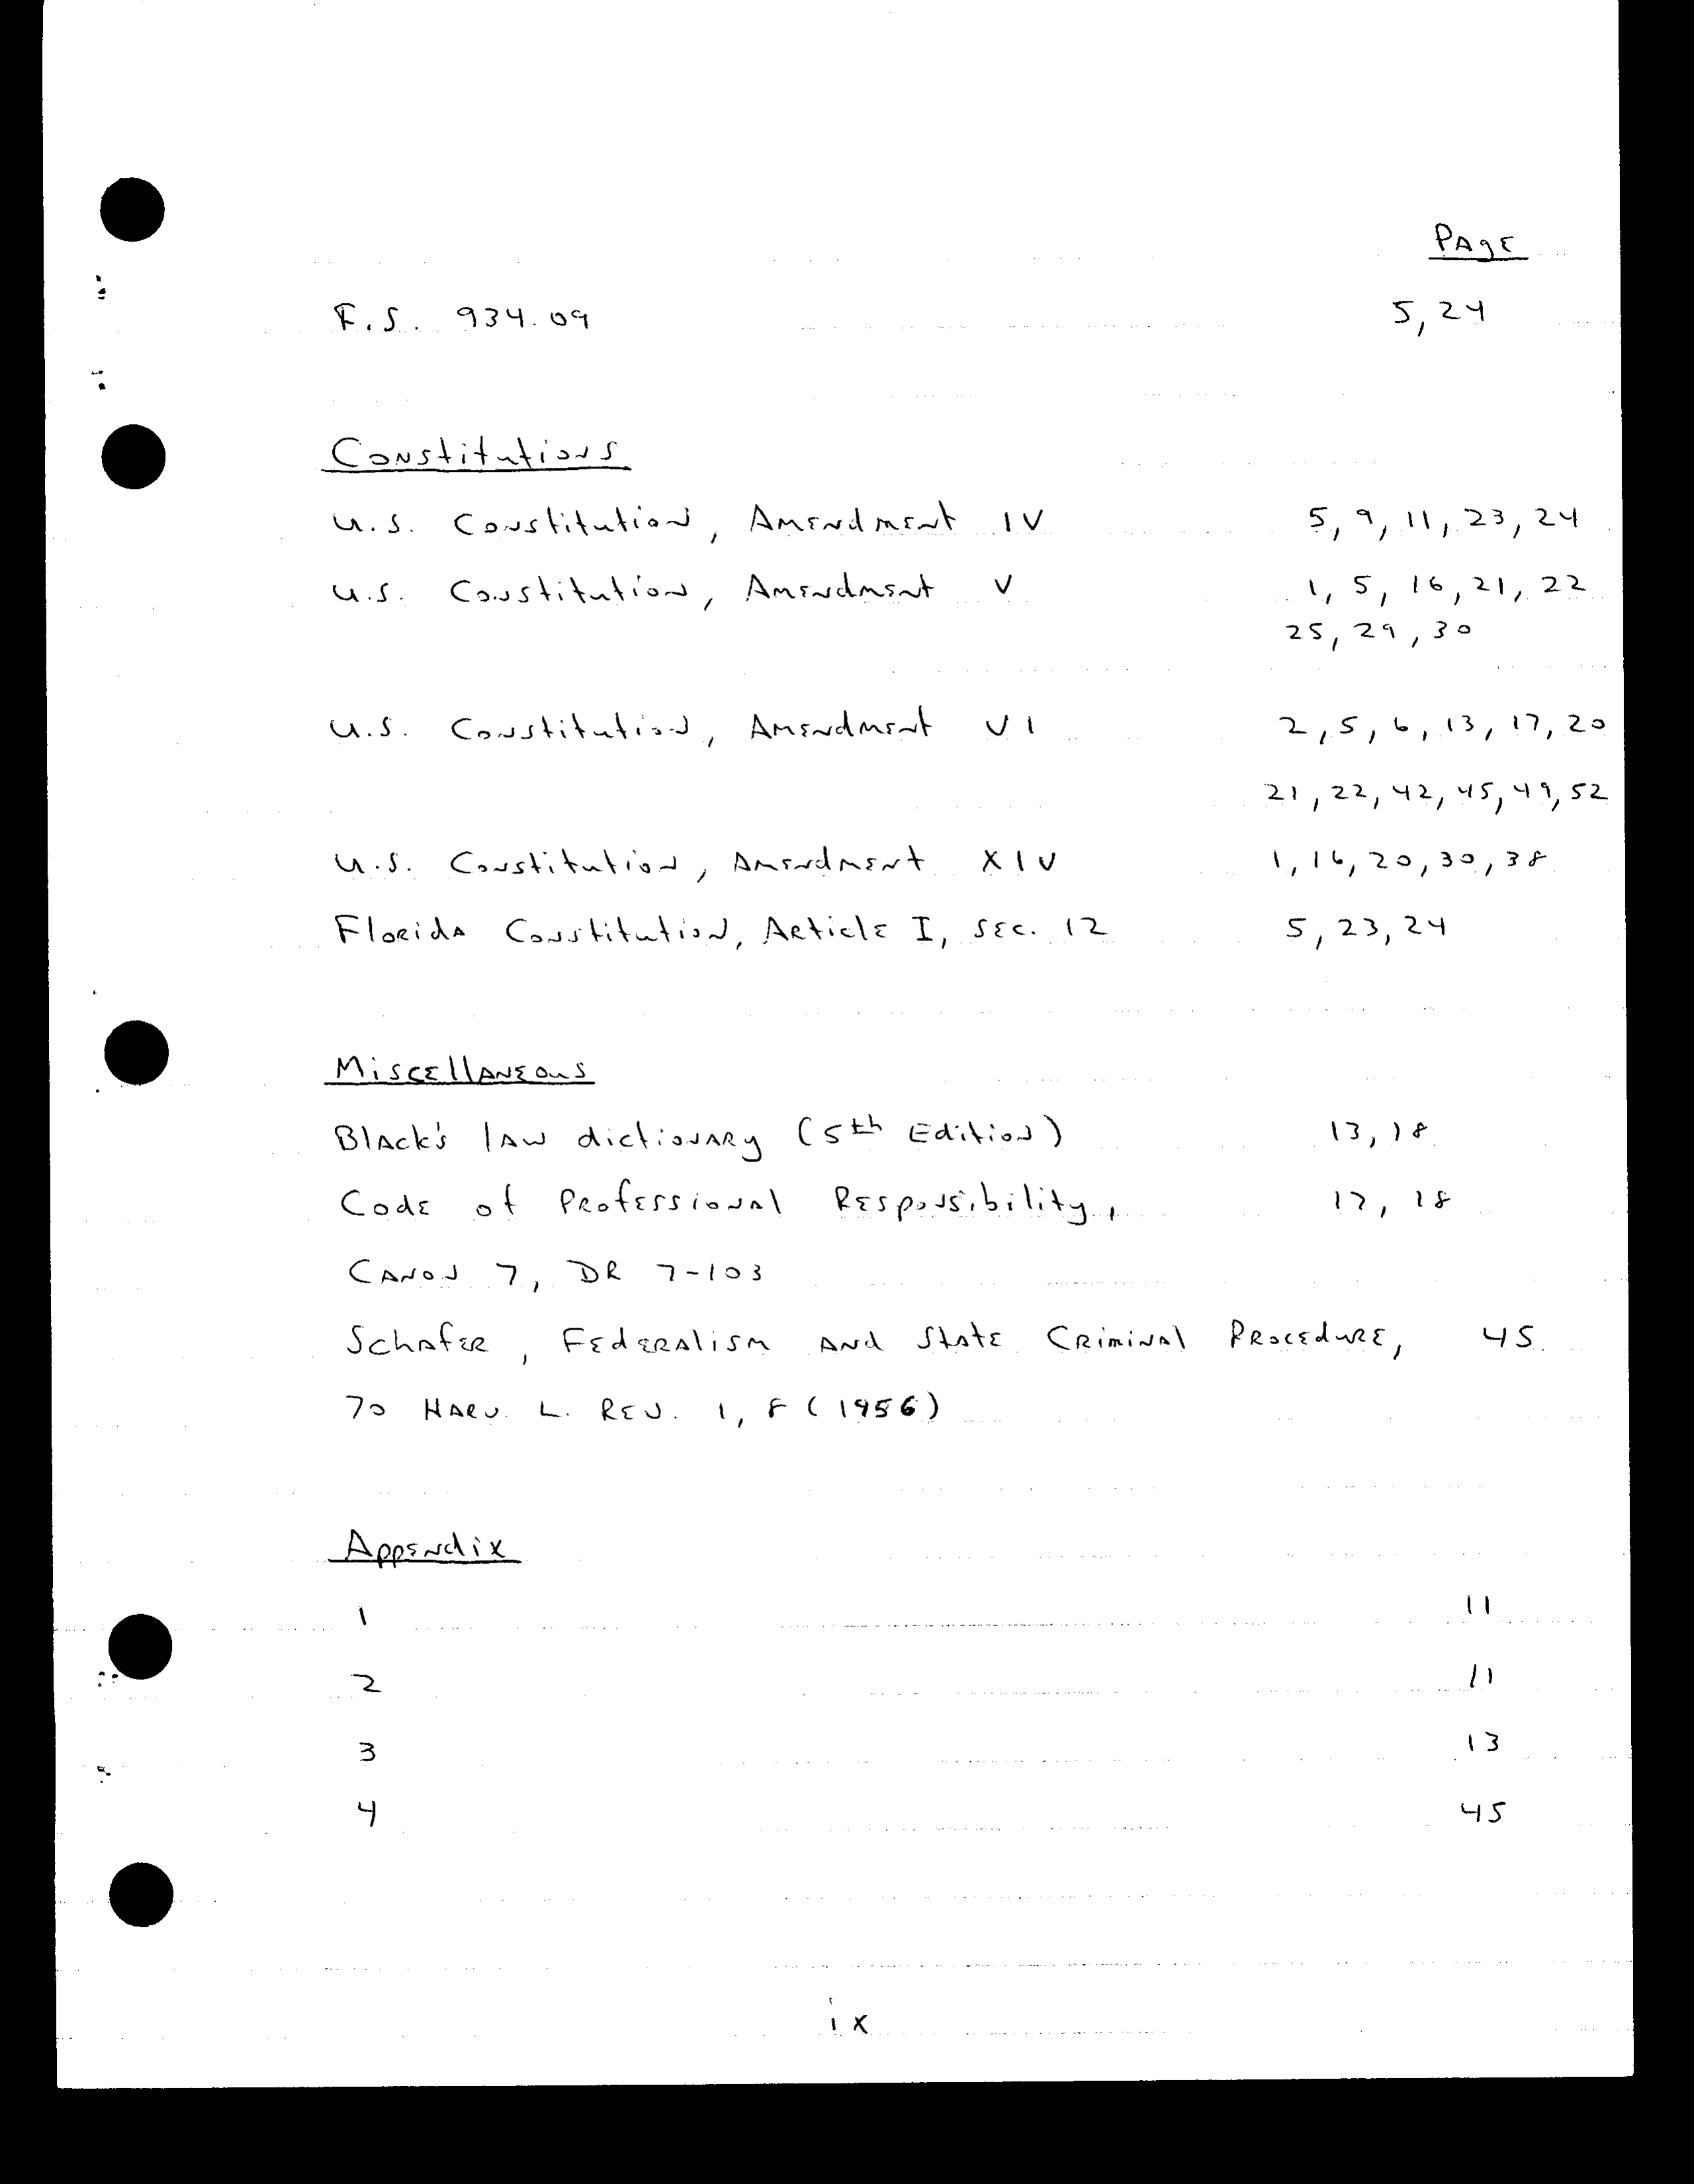 Page
F.S. 934.09 5, 24
Constitutions
U.S. Constitution, Amendment IV 5, 9, 11, 23, 24
U.S. Constitution, Amendment V 1, 5, 16, 21, 22
25, 29, 30
U.S. Constitution, Amendment VI 2, 5, 6, 13, 17, 20
21, 22, 42, 45, 49, 52
U.S. Constitution, Amendment XIV 1, 16, 20, 30, 38
Florida Constitution, Article I, Sec. 12 5, 23, 24
Miscellaneous
Black's law dictionary (5th Edition) 13, 18
Code of Professional Responsibility, 17, 18
Canon 7, DR 7-103
Schafer, Federalism and State Criminal Procedure, 45
70 Harv. L. Rev. 1, 8 (1956)
Appendix
1 11
2 11
3 13
4 45
ix